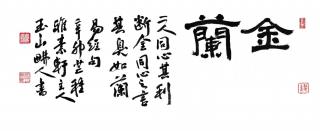 金蘭
二人同心其利
断金同心之言
其臭如蘭
易經句
辛卯芒種
雅素軒主人
玉山畊人書